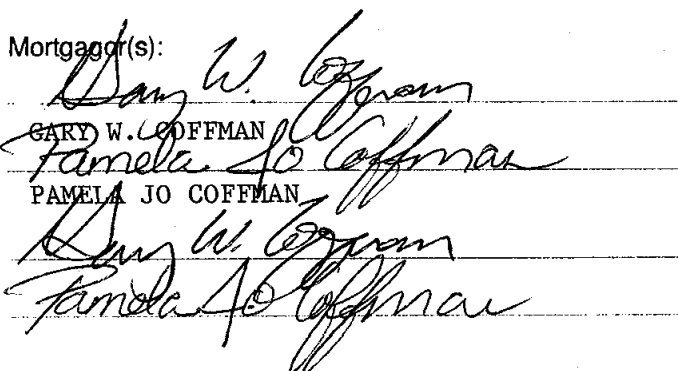 Mortgagor(s):
Gary W. Coffman
GARY W. COFFMAN
Pamela Jo Coffman
PAMELA JO COFFMAN
Gary W. Coffman
Pamela Jo Coffman